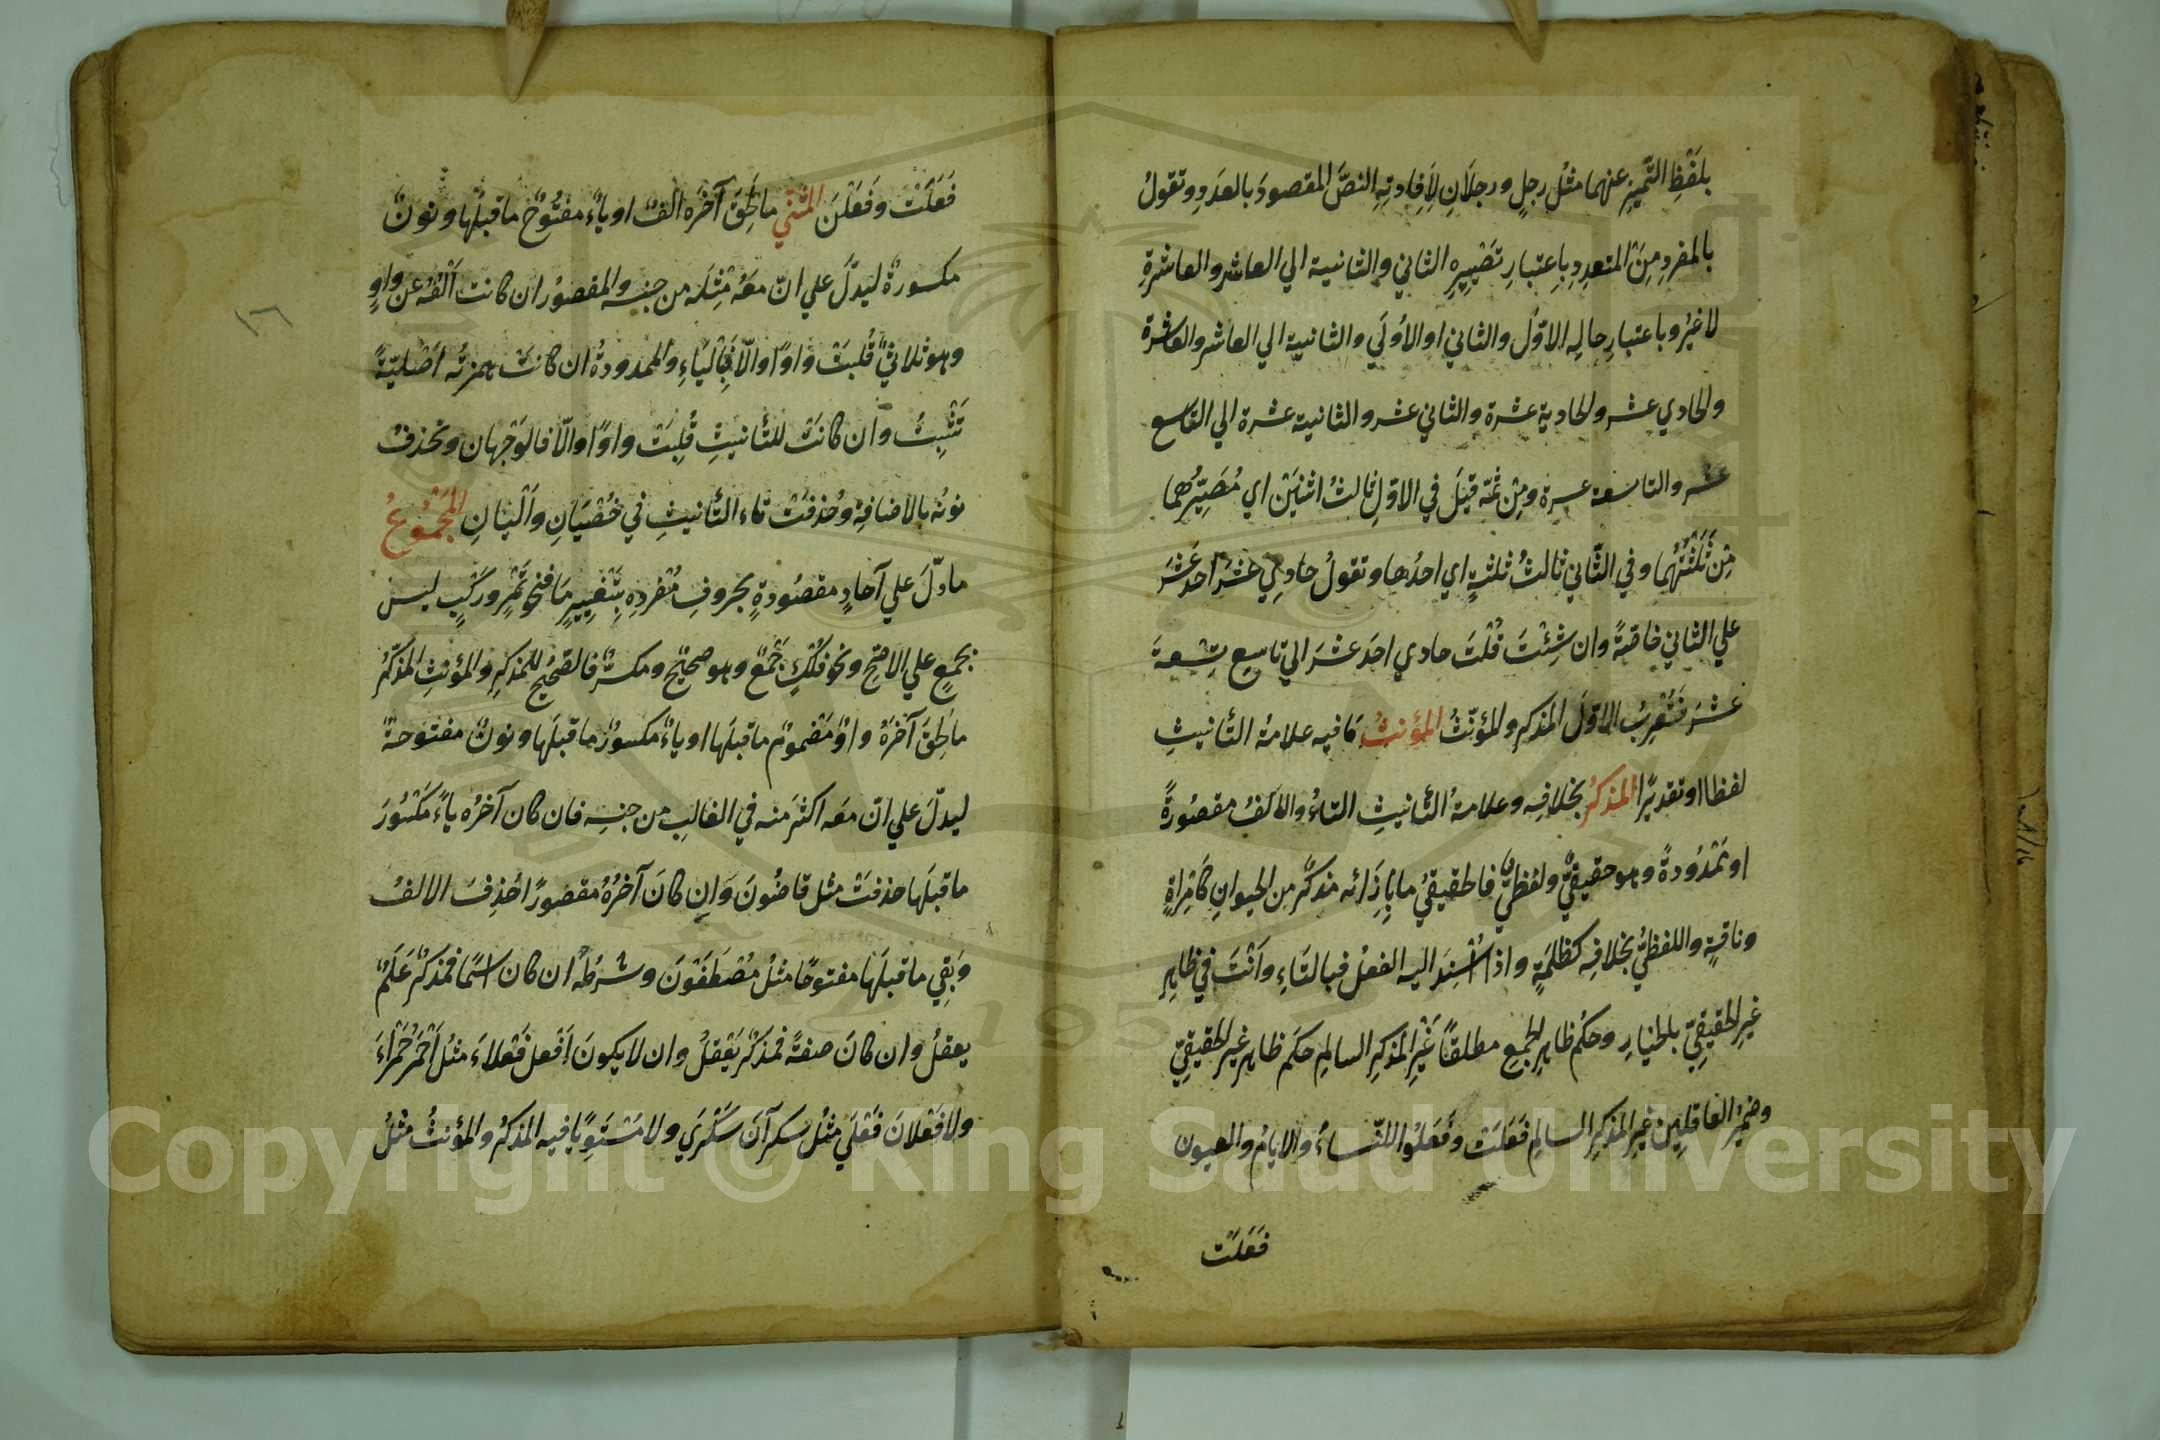 بلَفْظِ التَّمْيِيزِ عنهما مثلُ رجلٍ ورجلَانِ لِإفادتِهِ النصَّ المقصودَ بالعدَدِ وتقولُ
بالمفردِ مِنَ المتعددِ باِعتبارِ تَصْيِيرِهِ الثاني والثانية الي العاشر والعاشرةِ
لا غيرُ وباعتبارِ حالِه الاوّل والثاني او الأولَي والثانية الي العاشر والعاشرة
والحادي عشر والحادية عشرة والثاني عشر والثانية عشرة الي التاسع
عشر والتاسعة عشرة ومِنْ ثمّه قيلَ في الاوّلِ ثالثُ اثنَيْنِ اي مُصَيِّرُهما
مِنْ ثَلَثْتُهُما وفي الثّاني ثالثُ ثلثةٍ اي احدُها وتقولُ حادِي عَشَرَ احدَ عَشَرَ
علي الثاني خاصّةً وان شِئْتَ قُلْتَ حادي احدَ عشرَ الي تاسِعِ تِسْعةَ
عشرَ فَتُعْرِبُ الاوّلَ المذكر والمؤنّثُ المؤنثُ مَا فيه علامةُ التأنيثِ
لفظا او تقديرًا المذكرُ بخلافِه وعلامةُ التأنيثِ التاءُ والالفُ مقصُورةً
او ممْدُودةً وهو حقيقيٌّ ولفظيٌّ فالحقيقيُّ ما بِإزَائه مذكرٌ من الحيوانِ كامْرأةٍ
وناقةٍ واللفظيُّ بخلافِه كظلمَةٍ واذا اُسْنِدَ اليه الفعلُ فبالتاءِ وانْتَ في ظاهر
غيرِ الحقيقيّ بالخيارِ وحكمُ ظاهرِ الجمعِ مطلقاً غَيْرِ المذكرِ السالمِ حكمُ ظاهر غيرِ الحقيقيِّ
وضميرُ العاقلِين غيرِ المذكرِ السالمِ فَعَلَتْ وفَعَلُوا والنّساءُ والايامُ والعيون
فَعَلَتْ
فَعَلَتْ وفَعَلْنَ المثني ما لَحِقَ آخرَه الفٌ او ياءٌ مفتُوحٌ ما قبلَها ونونٌ
مكسورةٌ ليدلَّ علي انّ معَهُ مِثْلَه من جنسِه والمقصُورُ ان كانت اَلْفُه عن واوٍ
وهو ثلاثيٌّ قُلبَتْ واوًا والّا فَبِالْيَاءِ والممدودةُ ان كانتْ همزتُه اَصْليّةً
تَثْبِتُ وان كانتْ للتأنيثِ قُلِبَتْ واوًا والّا فالوَجْهان وتحذفُ
نونُه بالاضافةِ وحُذفتْ تاء التأنيثِ في خُصْيَانِ واَلْيَانِ المَجْمُوعُ
ما دلَّ علي آحادٍ مقصُودةٍ بحروفِ مُفْردِهِ بِتَغْيِيرٍ مَا فنحو تَمْرٍ ورَكْبٍ ليس
بجمعٍ علي الاصحِّ ونحو فُلْكٍ جَمْعٌ وهو صحيحٌ ومكسّرٌ فالصّحيحُ للمذكرِ والمؤنثِ المذكّرُ
ما لَحِقَ آخرَهُ واوٌ مَضْمومٌ ما قبلَها او ياءٌ مكسورٌ ما قبلَها ونونٌ مفتوحةٌ
ليدلَّ علي انّ معَه اكثرَ منه في الغالبِ من جنسِه فان كان آخرُه ياءً مَكْسُورَ
ما قبلَها حذفتْ مثل قاضُونَ وَاِن كانَ آخرُهُ مقصُورًا حُذِفتِ الالفُ
وَبقِي ما قبلَها مفتوحًا مثلُ مُصْطَفَوْنَ وشرطُه ان كان اسمًا فمذكرٌ عَلَمٌ
يعقلُ وان كانَ صفةً فمذكرٌ يَعْقلُ وان لا يكونَ اَفْعل فَعْلاءَ مثلُ اَحْمَرُ حَمْراءَ
ولا فَعْلانَ فَعْلَي مثلُ سكرآنَ سَكْرَي ولا مسْتَوِيًا فيه المذكرُ والمؤنثُ مثلُ
١٦